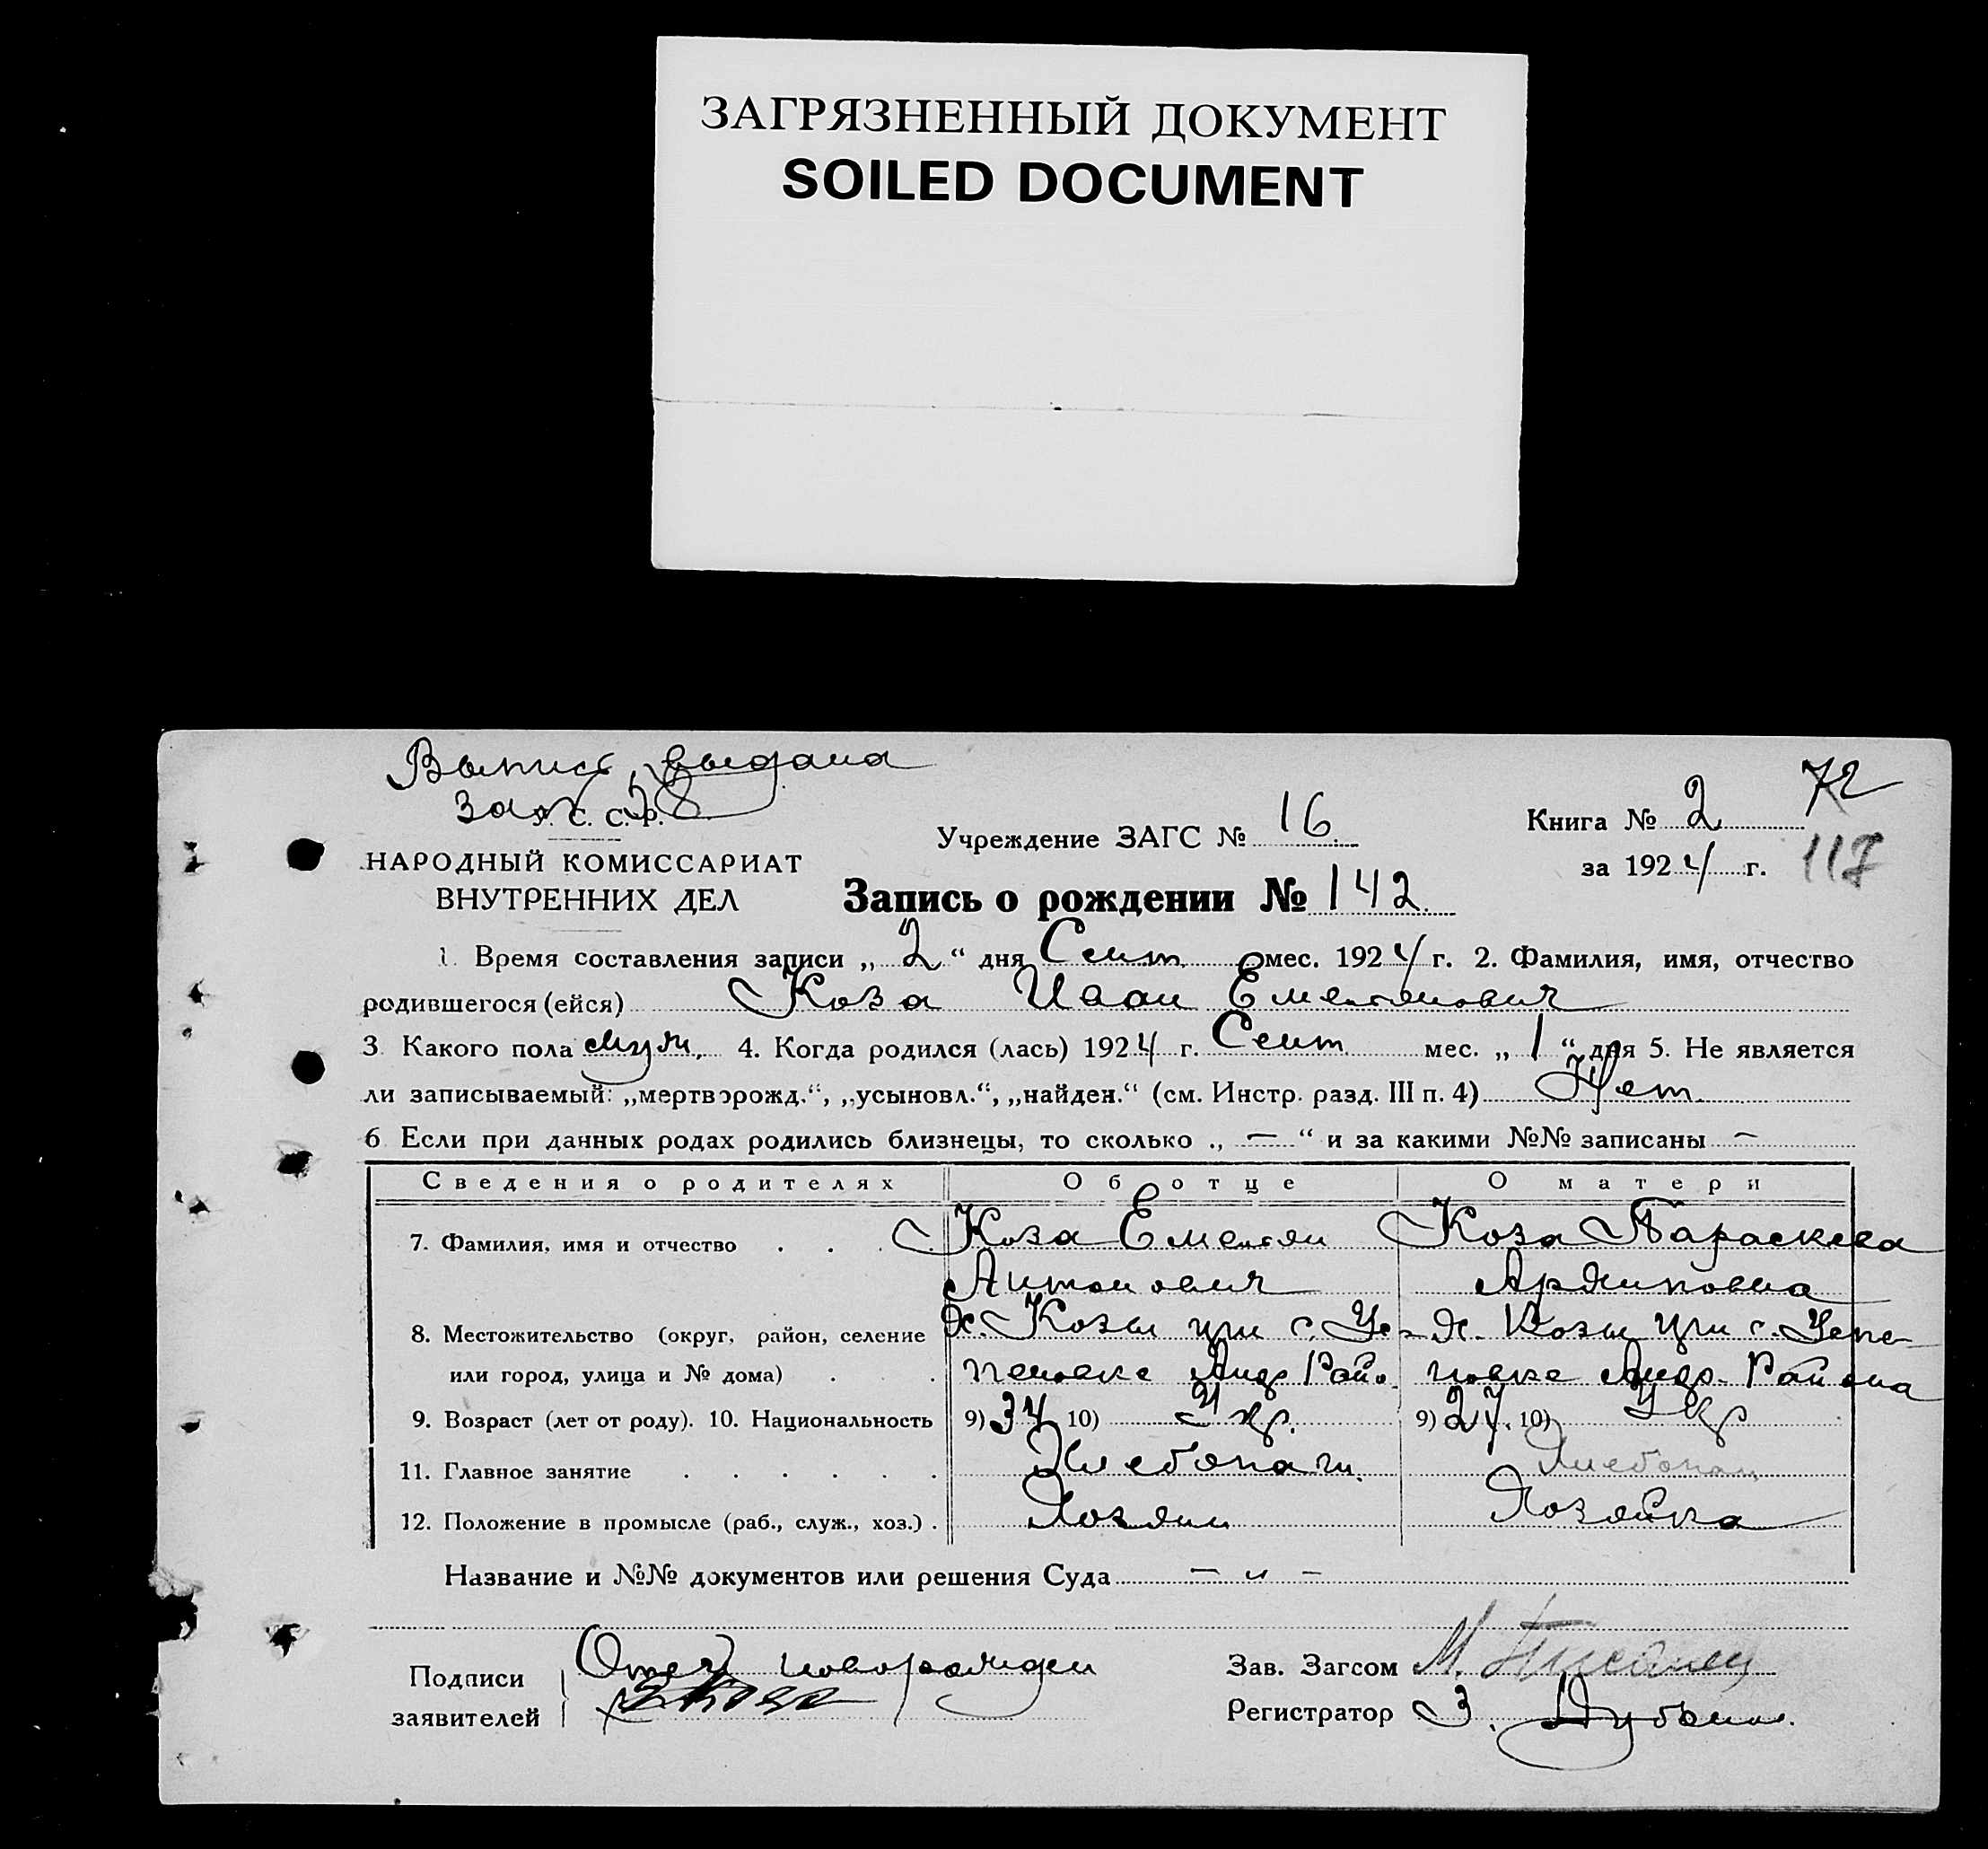 ЗАГРЯЗНЕННЫЙ ДОКУМЕНТ
SOILED DOCUMENT
Выпись выдана
за № 28
У. С. С. Р.
НАРОДНЫЙ КОМИССАРИАТ
ВНУТРЕННИХ ДЕЛ
Учреждение ЗАГС № 16
Книга № 2 72
за 1924 г. 117
Запись о рождении № 142
1. Время составления записи „ 2 “ дня Сент. мес. 1924 г. 2. Фамилия, имя, отчество
родившегося (ейся) Коза Иван Емельянович
3. Какого пола муж. 4. Когда родился (лась) 1924 г. Сент. мес. „ 1 “ дня 5. Не является
ли записываемый: „мертворожд.“, „усыновл.“, „найден.“ (см. Инстр. разд. III п. 4) Нет
6 Если при данных родах родились близнецы, то сколько „ — “ и за какими №№ записаны —
Сведения о родителях Об отце О матери
7. Фамилия, имя и отчество . . . Коза Емельян Коза Параскева
Антонович Архиповна
8. Местожительство (округ, район, селение х. Козы при с. х. Козы при с.
или город, улица и № дома) . . . Андр. Райо. Андр. Района
9. Возраст (лет от роду). 10. Национальность 9) 34 10) Укр. 9) 27. 10) Укр
11. Главное занятие . . . . . . Хлебопаш. Хлебопаш
12. Положение в промысле (раб., служ., хоз.) . Хозяин Хозяйка
Название и №№ документов или решения Суда — „ —
Подписи Отец новорожден
заявителей Коза
Зав. Загсом М. Писанец
Регистратор З.